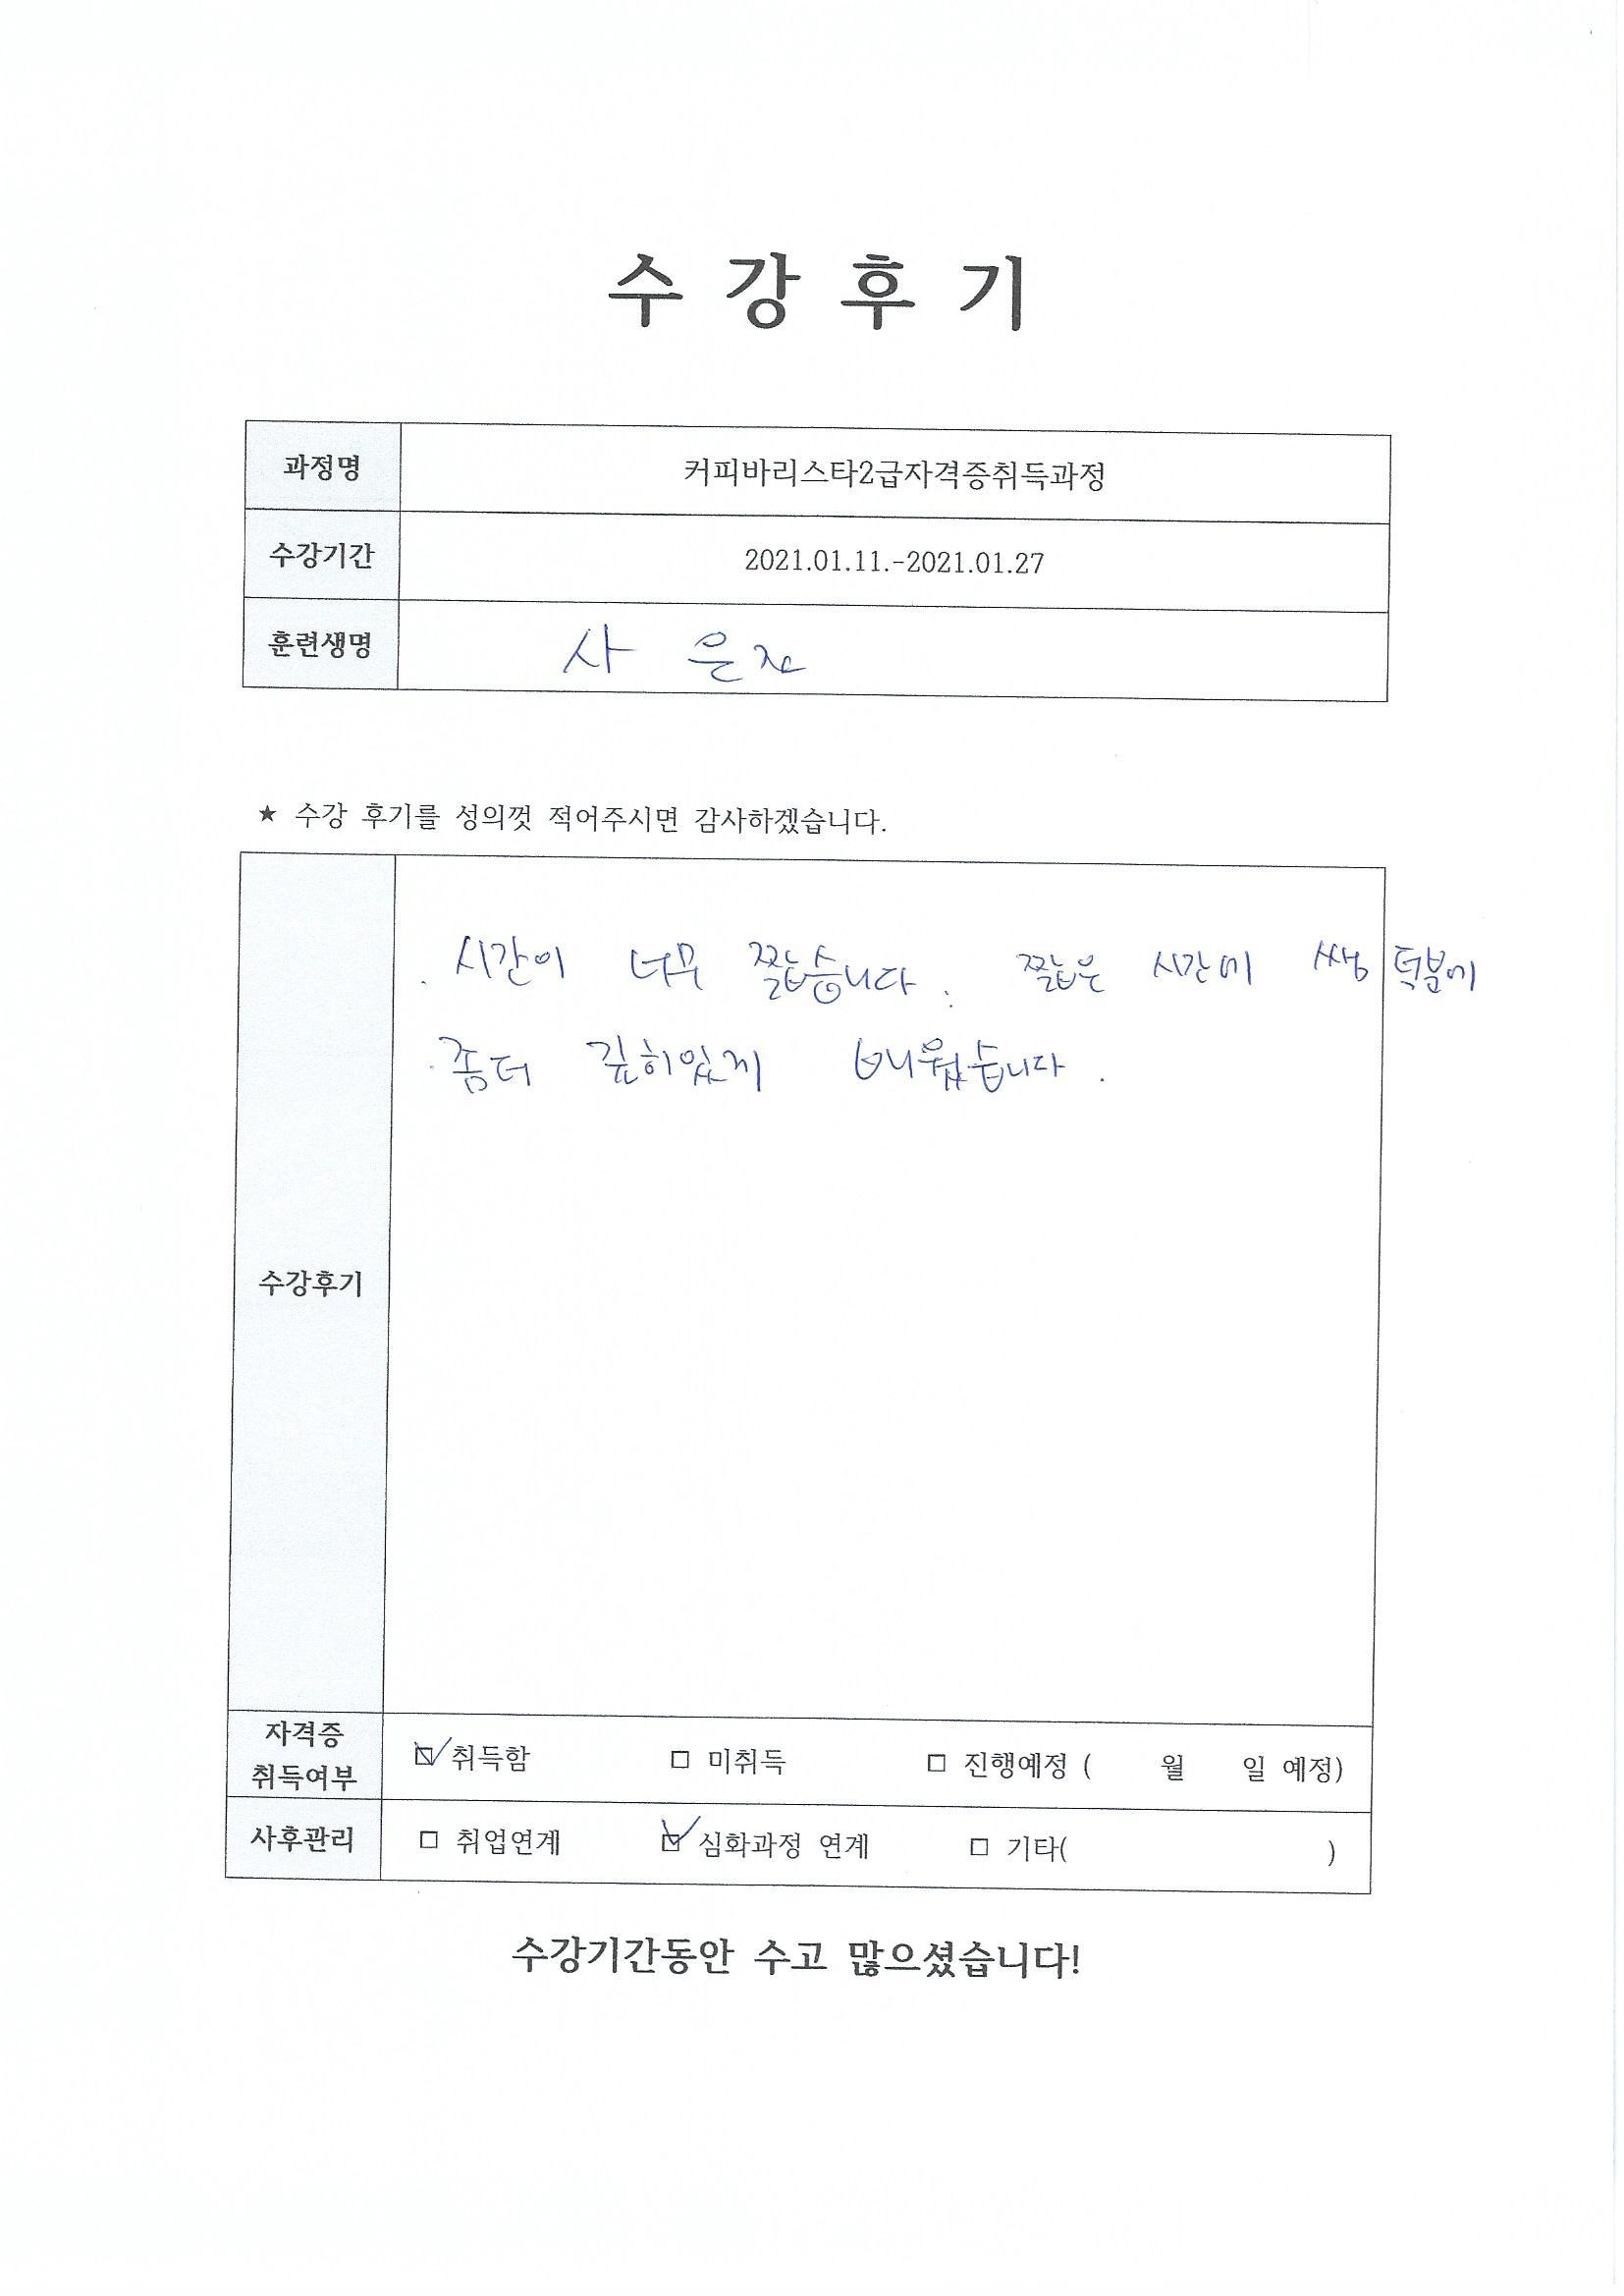 수 강 후 기
과정명 커피바리스타2급자격증취득과정
수강기간 2021.01.11.-2021.01.27
훈련생명 사 은자
★ 수강 후기를 성의껏 적어주시면 감사하겠습니다.
. 시간이 너무 짧습니다. 짧은 시간에 쌤 덕분에
좀더 깊히있게 배웠습니다.
수강후기
자격증
취득여부 ☑ 취득함 □ 미취득 □ 진행예정 ( 월 일 예정)
사후관리 □ 취업연계 ☑ 심화과정 연계 □ 기타( )
수강기간동안 수고 많으셨습니다!